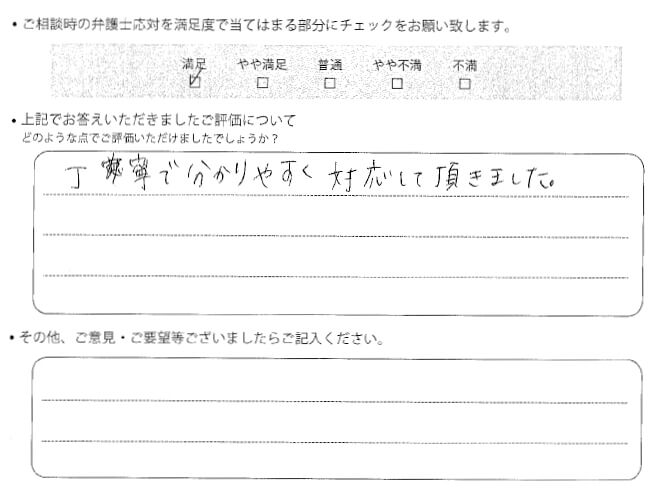 ・ご相談時の弁護士応対を満足度で当てはまる部分にチェックをお願い致します。
満足 やや満足 普通 やや不満 不満
☑ □ □ □ □
・上記でお答えいただきましたご評価について
どのような点でご評価いただけましたでしょうか？
丁寧で分かりやすく対応して頂きました。
・その他、ご意見・ご要望等ございましたらご記入ください。